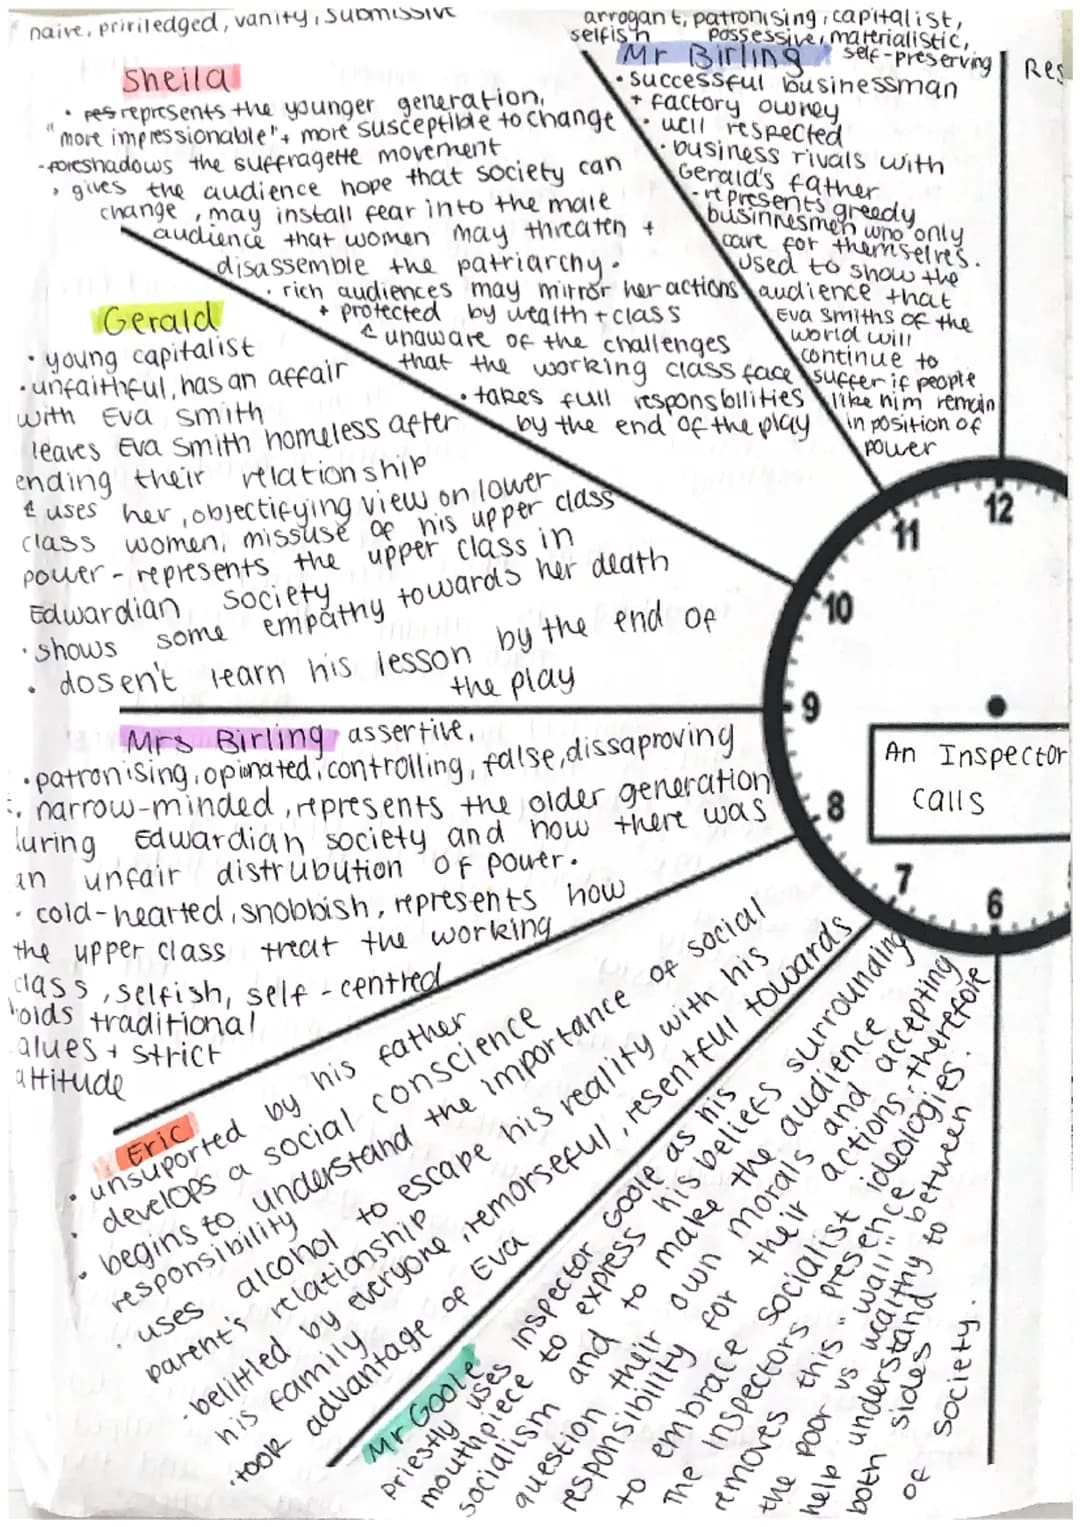 naive, priviledged, vanity, submissive
Sheila
• res represents the younger generation,
"more impressionable" + more susceptible to change
- foreshadows the suffragette movement
• gives the audience hope that society can
change, may install fear into the male
audience that women may threaten +
disassemble the patriarchy.
• rich audiences may mirror her actions
+ protected by wealth + class
& unaware of the challenges
that the working class face
• takes full responsbilities
by the end of the play
arrogant, patronising, capitalist,
selfish possessive, materialistic,
Mr Birling self-preserving
• successful businessman
+ factory owney
• well respected
• business rivals with
Gerald's father
- represents greedy
businnesmen who only
care for themselves.
used to show the
audience that
Eva Smiths of the
world will
continue to
suffer if people
like him remain
in position of
power
Res
Gerald
• young capitalist
• unfaithful, has an affair
with Eva Smith
leaves Eva Smith homeless after
ending their relationship
& uses her, objectifying view on lower
class women, missuse of his upper class
power - represents the upper class in
Edwardian society
• shows some empathy towards her death
• dosen't learn his lesson by the end of
the play
Mrs Birling assertive,
• patronising, opionated, controlling, false, dissaproving
narrow-minded, represents the older generation
during Edwardian society and how there was
an unfair distrubution of power.
• cold-hearted, snobbish, represents how
the upper class treat the working
class, selfish, self-centred
holds traditional
values + strict
attitude
Eric
• unsuported by his father
• develops a social conscience
• begins to understand the importance of social
responsibility
• uses alcohol to escape his reality with his
parent's relationship
• belittled by everyone, remorseful, resentful towards
his family
• took advantage of Eva
Mr Goole
priestly uses Inspector Goole as his
mouthpiece to express his beliefs surrounding
socialism and to make the audience
question their own morals and accepting
responsibility for their actions, therefore
to embrace socialist ideologies.
The Inspectors presence
removes this "wall" between
the poor vs wealthy to
help understand
both sides
of society.
12
11
10
9
8
7
6
An Inspector
Calls